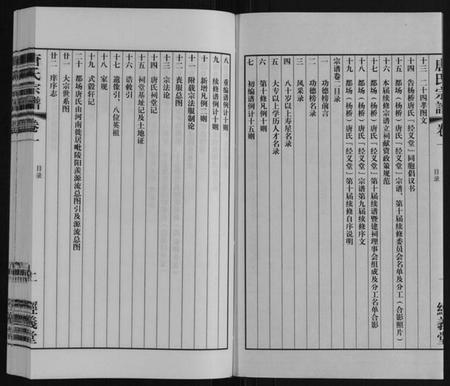 唐氏宗谱 卷一
十三、二十四孝图文
十四、告杨桥唐氏「经义堂」同胞倡议书
十五、都场（杨桥）唐氏「经义堂」宗谱、第十届续修委员会名单及分工（合影照片）
十六、本届续修宗谱立祠献资政策规范
十七、都场（杨桥）唐氏「经义堂」第十届续谱暨建祠理事会组成及分工名单合影
十八、都场（杨桥）唐氏「经义堂」宗谱第九届续修序文
十九、都场（杨桥）唐氏「经义堂」第十届续修自序说明
宗谱卷二目录
一、功德榜前言
二、功德榜名录
三、风采录
四、八十岁以上寿星名录
五、大专以上学历人才名录
六、第十修凡例一则
七、初编谱例计十五则
目录
一
經義堂
八、重编谱例计十则
九、续修谱例计十则
十、新增凡例三则
十一、附载宗法服制论
十二、丧服总图
十三、宗法论
十四、唐氏祠堂记
十五、祠堂基址记及土地证
十六、浩敕引
十七、遗像引、八位英祖
十八、家规
十九、式毅轩记
二十、都场唐氏由河南徙居毗陵阳羡源流总图引及源流总图
廿一、大宗世系图
廿二、序序志
唐氏宗谱 卷一
目录
二
經義堂